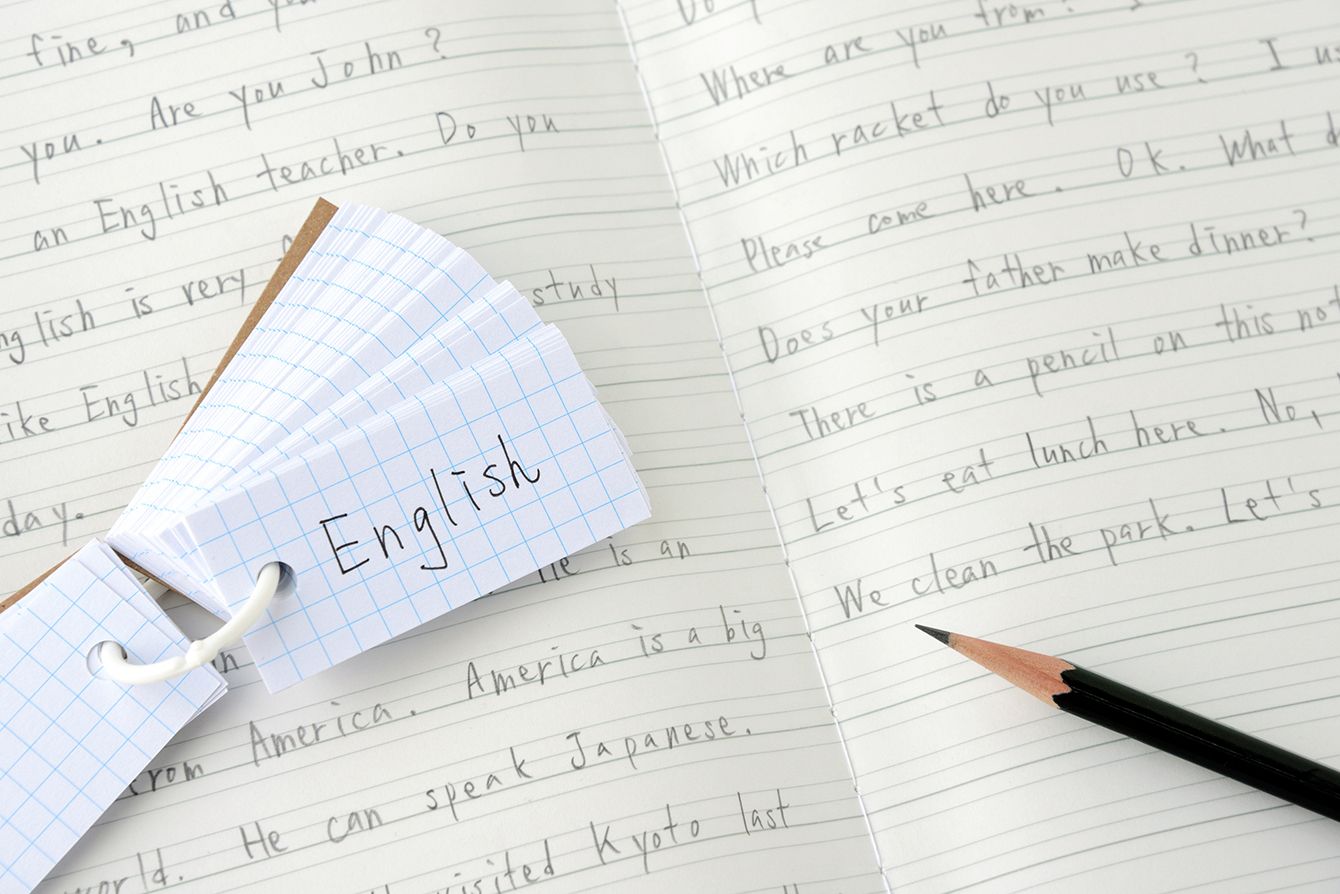 fine, and you
you. Are you John?
an English teacher. Do you
English is very
study
like English
day.
He is an
from America. America is a big
world. He can speak Japanese.
visited Kyoto last
English
Do
Where are you from?
Which racket do you use? I us
Please come here. Ok. What d
Does your father make dinner?
There is a pencil on this not
Let's eat lunch here. No,
We clean the park. Let's